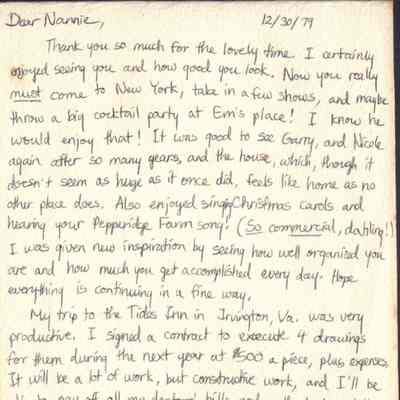 Dear Nannie, 12/30/79
Thank you so much for the lovely time. I certainly
enjoyed seeing you and how good you look. Now you really
must come to New York, take in a few shows, and maybe
throw a big cocktail party at Em's place! I know he
would enjoy that! It was good to see Garry, and Nicole
again after so many years, and the house, which, though it
doesn't seem as huge as it once did, feels like home as no
other place does. Also enjoyed singing Christmas carols and
hearing your Pepperidge Farm song! (So commercial, dahling!)
I was given new inspiration by seeing how well organized you
are and how much you get accomplished every day. Hope
everything is continuing in a fine way.
My trip to the Tides Inn in Irvington, Va. was very
productive. I signed a contract to execute 4 drawings
for them during the next year at $500 a piece, plus expenses.
It will be a lot of work, but constructive work, and I'll be
pay off all my bills and